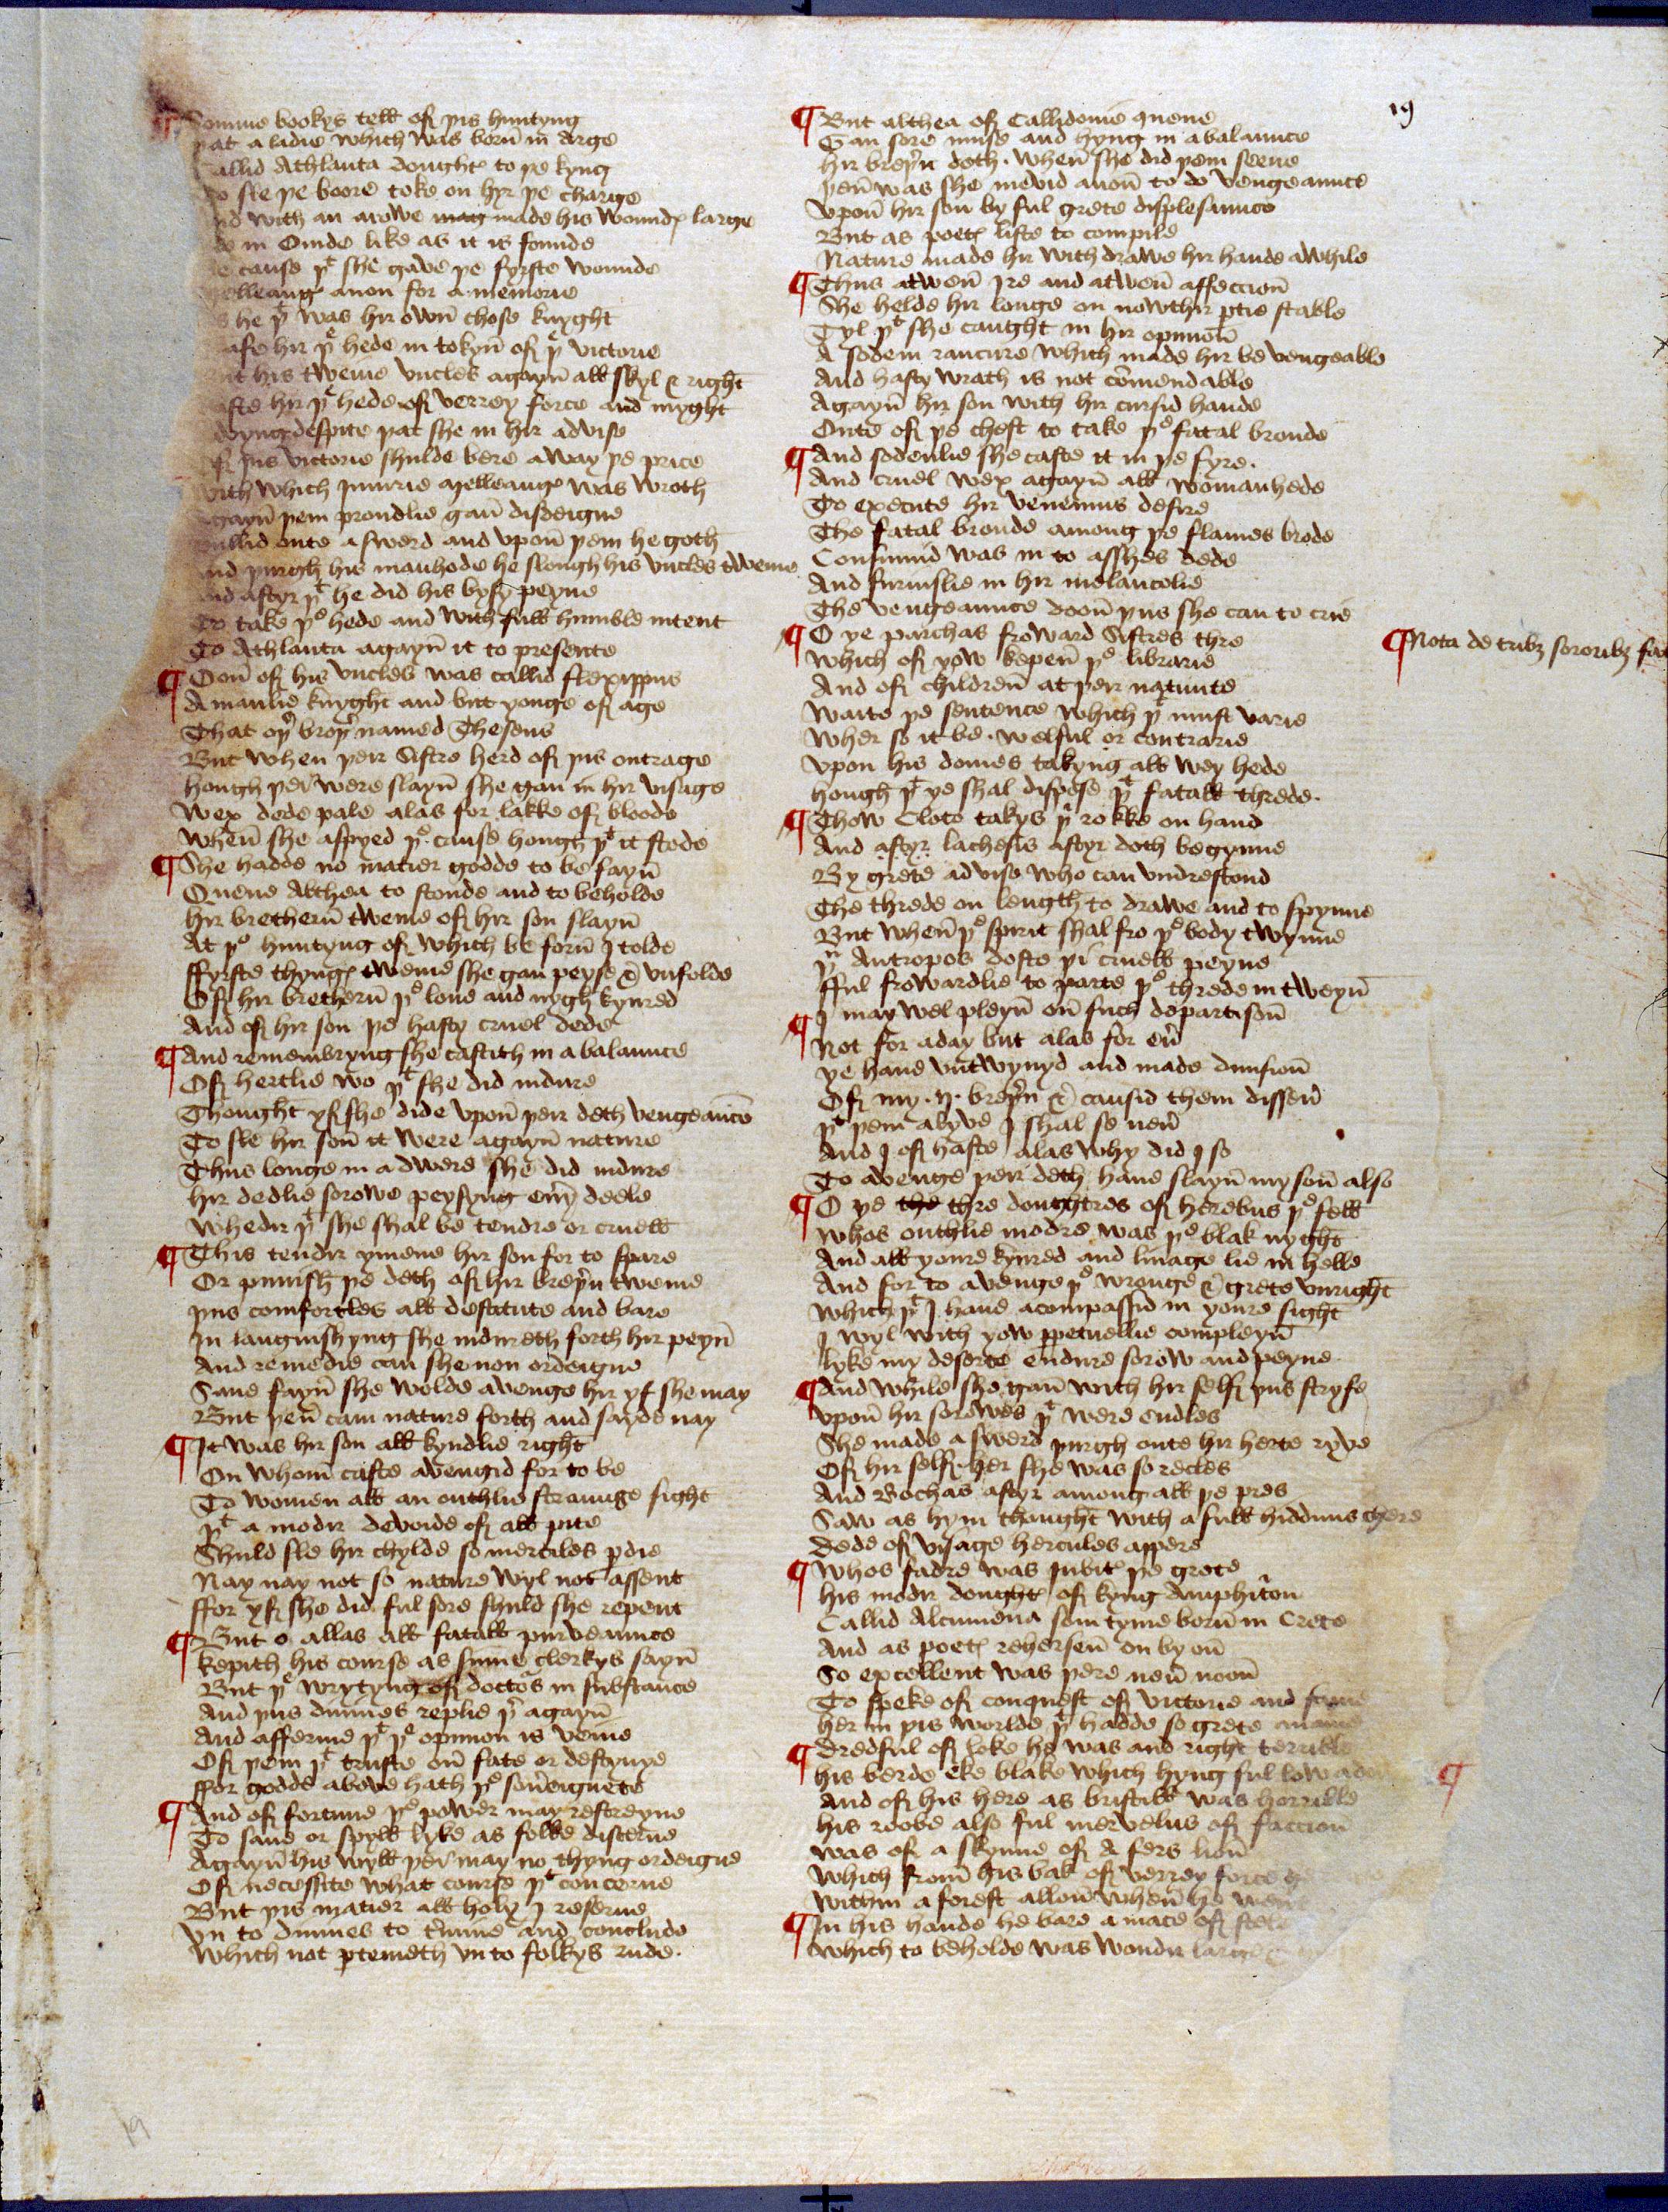 ¶ Somme bookys tell of þis huntyng
þat a ladie which was born̄ in Arge
Callid Athlanta dought to þe kyng
To sle þe boore toke on hyr þe charge
And with an arowe made his wound large
in Ouide like as it is founde
cause þt she gave þe fyrste wounde
anon for a memorie
he þt was hir own̄ chose knyght
hir þe hede in tokyn̄ of þe victorie
But his tweine vncles agayn̄ all skyl & right
hir þe hede of verrey force and myght
despite þat she in hir advise
Of þis victorie shulde bere away þe price
With which iniurie Melleaug was wroth
Agayn̄ þem proudlie gan̄ disdeigne
Pullid oute a swerd and vpon̄ þem he goth
And þurgh his manhode he slough his vncles tweine
And aftyr þt he did his bysy peyne
To take þe hede and with full humble intent
To Athlanta agayn̄ it to presente
¶ Oon̄ of his vncles was callid flexippus
A manlie knyght and but yonge of age
That oþr broþr named Theseus
But when þeir Sistre herd of þis outrage
hough þei were slayn̄ she gan in hir visage
Wex dede pale alas for lakke of bloode
When̄ she aspyed þe cause hough þt it stode
¶ She hadde no matier godde to be fayn̄
Quene Althea to stonde and to beholde
hir bretherin̄ tweine of hir son slayn̄
At þe huntyng of which be forn̄ I tolde
ffyrste thyng tweine she gan peyse & vnfolde
Of hir bretherin̄ þe loue and nygh kynred
And of hir son þe hasty cruel dede
¶ And remembryng she castith in a balaunce
Of hertlie wo þt she did indure
Thought yf she dide vpon̄ þeir deth vengeaunce
To sle hir son̄ it were agayn̄ nature
Thus longe in a dwere she did indure
hir dedlie sorowe peysyng euery deele
Whedir þt she shal be tendre or cruell
¶ This tendir ymene hir son for to spare
Or punish þe deth of hir breþrn tweine
þus comfortles all destitute and bare
In languishyng she indureth forth hir peyn̄
And remedie can she non ordeigne
Saue fayn̄ she wolde avenge hir yf she may
But þen̄ cam nature forth and sayde nay
¶ It was hir son all kyndlie right
On whom̄ caste avengid for to be
To women all an outhlie straunge sight
þt a modir devoide of all pite
Shuld sle hir chylde so merciles pdie
Nay nay not so nature wyl not assent
ffor yf she did ful sore shuld she repent
¶ But o allas all fatall purveaunce
kepith his course as sūme clerkys sayn̄
But þe wrytyng of doctos in substaunce
And þus diuines replie þr agayn̄
And afferme þt þe opinion is veine
Of þem þt truste on̄ fate or destynye
ffor godde above hath þe souereignete
¶ And of fortune þe power may restreyne
To saue or spyll lyke as folke discerne
Agayn̄ his wyll þer may no thyng ordeigne
Of necessite what course þt concerne
But þis matier all holy I reserue
vn to diuines to tmine and conclude
Which not pteineth vn to folkys rude.
19
¶ But althea of Callidonie quene
Gan sore muse and hyng in a balaunce
hir breþrn deth. When̄ she did þem seene
þen̄ was she mevid anon̄ to do vengeaunce
vpon̄ hir son by ful grete displesaunce
But as poet liste to compile
Nature made hir with drawe hir hande awhile
¶ Thus atwen̄ ire and atwen̄ affeccion̄
She helde hir longe on nowthir ptie stable
Tyl þt she caught in hir opinion̄
A sodein rancure which made hir be vengeable
And hasty wrath is not cōmendable
Agayn̄ hir son with hir cursid hande
Oute of þe chest to take þe fatal bronde
¶ And sodenlie she caste it in þe fyre.
And cruel wex agayn̄ all womanhede
To execute hir venemus desire
The fatal bronde among þe flames brede
Consumid was in to asshes dede
And furiuslie in hir melancolie
The vengeaunce doon̄ þus she can to crie
¶ O ye parchas froward Sistres thre
Which of yow kepen̄ þe librarie
And of children̄ at þeir natiuite
Waite þe sentence which þt must varie
Wher so it be. welful or contrarie
vpon his domes takyng all wey hede
hough þt ye shal dispose þt fatall threde.
¶ Thow Cloto takys þi rokke on hand
And aftyr lachesis aftyr doth begynne
By grete advise who can vndrestond
The threde on length to drawe and to spynne
But when̄ þe spirit shal fro þe body twynne
þn Antropos doste þi cruell peyne
fful frowardlie to parte þe threde in tweyn̄
¶ I may wel pleyn̄ on̄ such departison̄
Not for aday but alas for eur̄
ye haue vntwynyd and made diuision̄
Of my .ij. breþrn & causid them disseur̄
þt þem alyve I shal se neur̄
And I of haste alas why did I so
To avenge þeir deth haue slayn̄ my son̄ also
¶ O ye the thre doughtres of herebus þe fell
Whos outhlie modre was þe blak nyght
And all youre kynred and linage lie in helle
And for to avenge þe wronge & grete vnright
Which þt I haue acompassid in youre sight
I wyl with yow ppetuellie compleyn̄
lyke my deserte endure sorow and peyne.
¶ And while she gan̄ with hir self þus stryfe
vpon̄ hir sorowes þt were endles
She made a swerd þurgh oute hir herte ryve
Of hir self her she was so recles
And Bochas aftyr among all þe pres
Saw as hym thaught with a full hiddius chere
Dede of visage hercules appere
¶ Whos fadre was Iubit þe grete
his modir dought of kyng Amphitōn
Callid Alcumena som tyme born̄ in Crete
And as poet rehersen̄ on by on̄
So excellent was þere neur̄ noon̄
To speke of conquest of victorie and fame
her in þis worlde þt hadde so grete
¶ Dredful of loke he was and right terrible
his berde eke blake which hyng ful low
And of his here as bristill was horrible
his roobe also ful mervelus of faccion̄
was of a skynne of A fers lion̄
Which from̄ his bak of verrey force
Within a forest allon̄ when̄ he went
¶ In his hande he bare a mace of stele
Which to beholde was wondir large
¶ Nota de tribȝ sororibȝ
¶
19